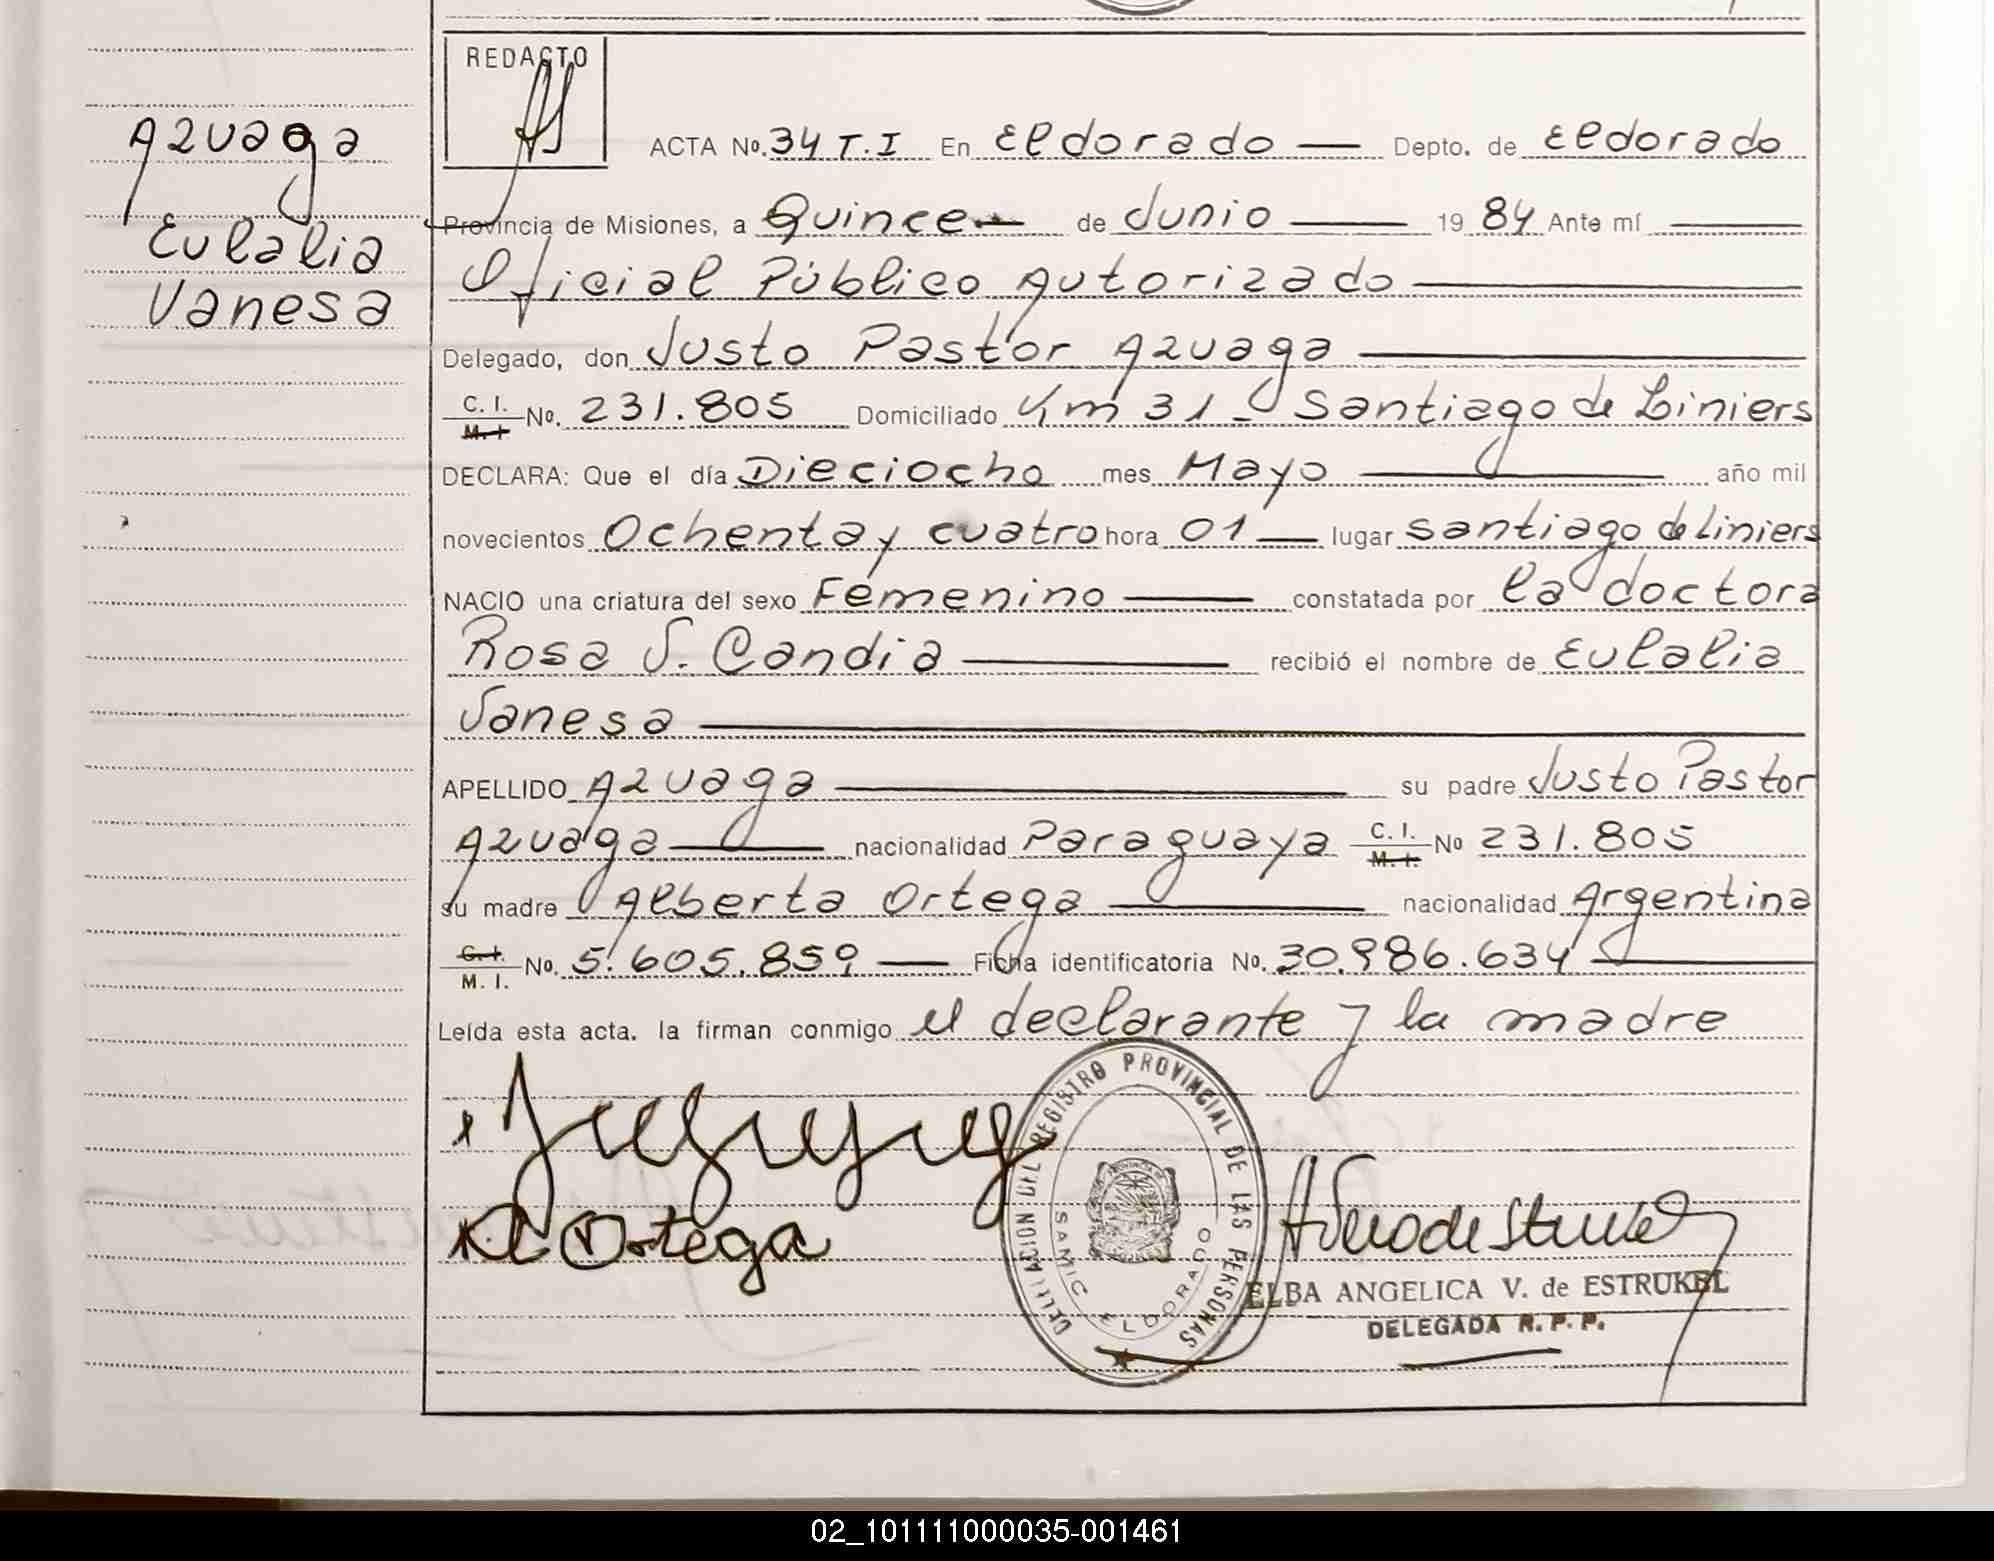 REDACTO
Azuaga
Eulalia
Vanesa
ACTA No. 34 T.I En Eldorado — Depto. de Eldorado
Provincia de Misiones, a Quince — de Junio — 1984 Ante mí —
Oficial Público Autorizado —
Delegado, don Justo Pastor Azuaga —
C. I. M. I No. 231.805 Domiciliado Km 31 - Santiago de Liniers
DECLARA: Que el día Dieciocho mes Mayo — año mil
novecientos Ochenta y cuatro hora 01 — lugar Santiago de Liniers
NACIO una criatura del sexo Femenino — constatada por la doctora
Rosa S. Candia — recibió el nombre de Eulalia
Vanesa —
APELLIDO Azuaga — su padre Justo Pastor
Azuaga — nacionalidad Paraguaya C. I. M. I. No 231.805
su madre Alberta Ortega — nacionalidad Argentina
C. I. M. I. No. 5.605.859 — Ficha identificatoria No. 30.986.634 —
Leída esta acta. la firman conmigo el declarante y la madre
Ortega
DELEGACION DEL REGISTRO PROVINCIAL DE LAS PERSONAS
SAMIC ELDORADO
ELBA ANGELICA V. de ESTRUKEL
DELEGADA R. P. P.
02_101111000035-001461